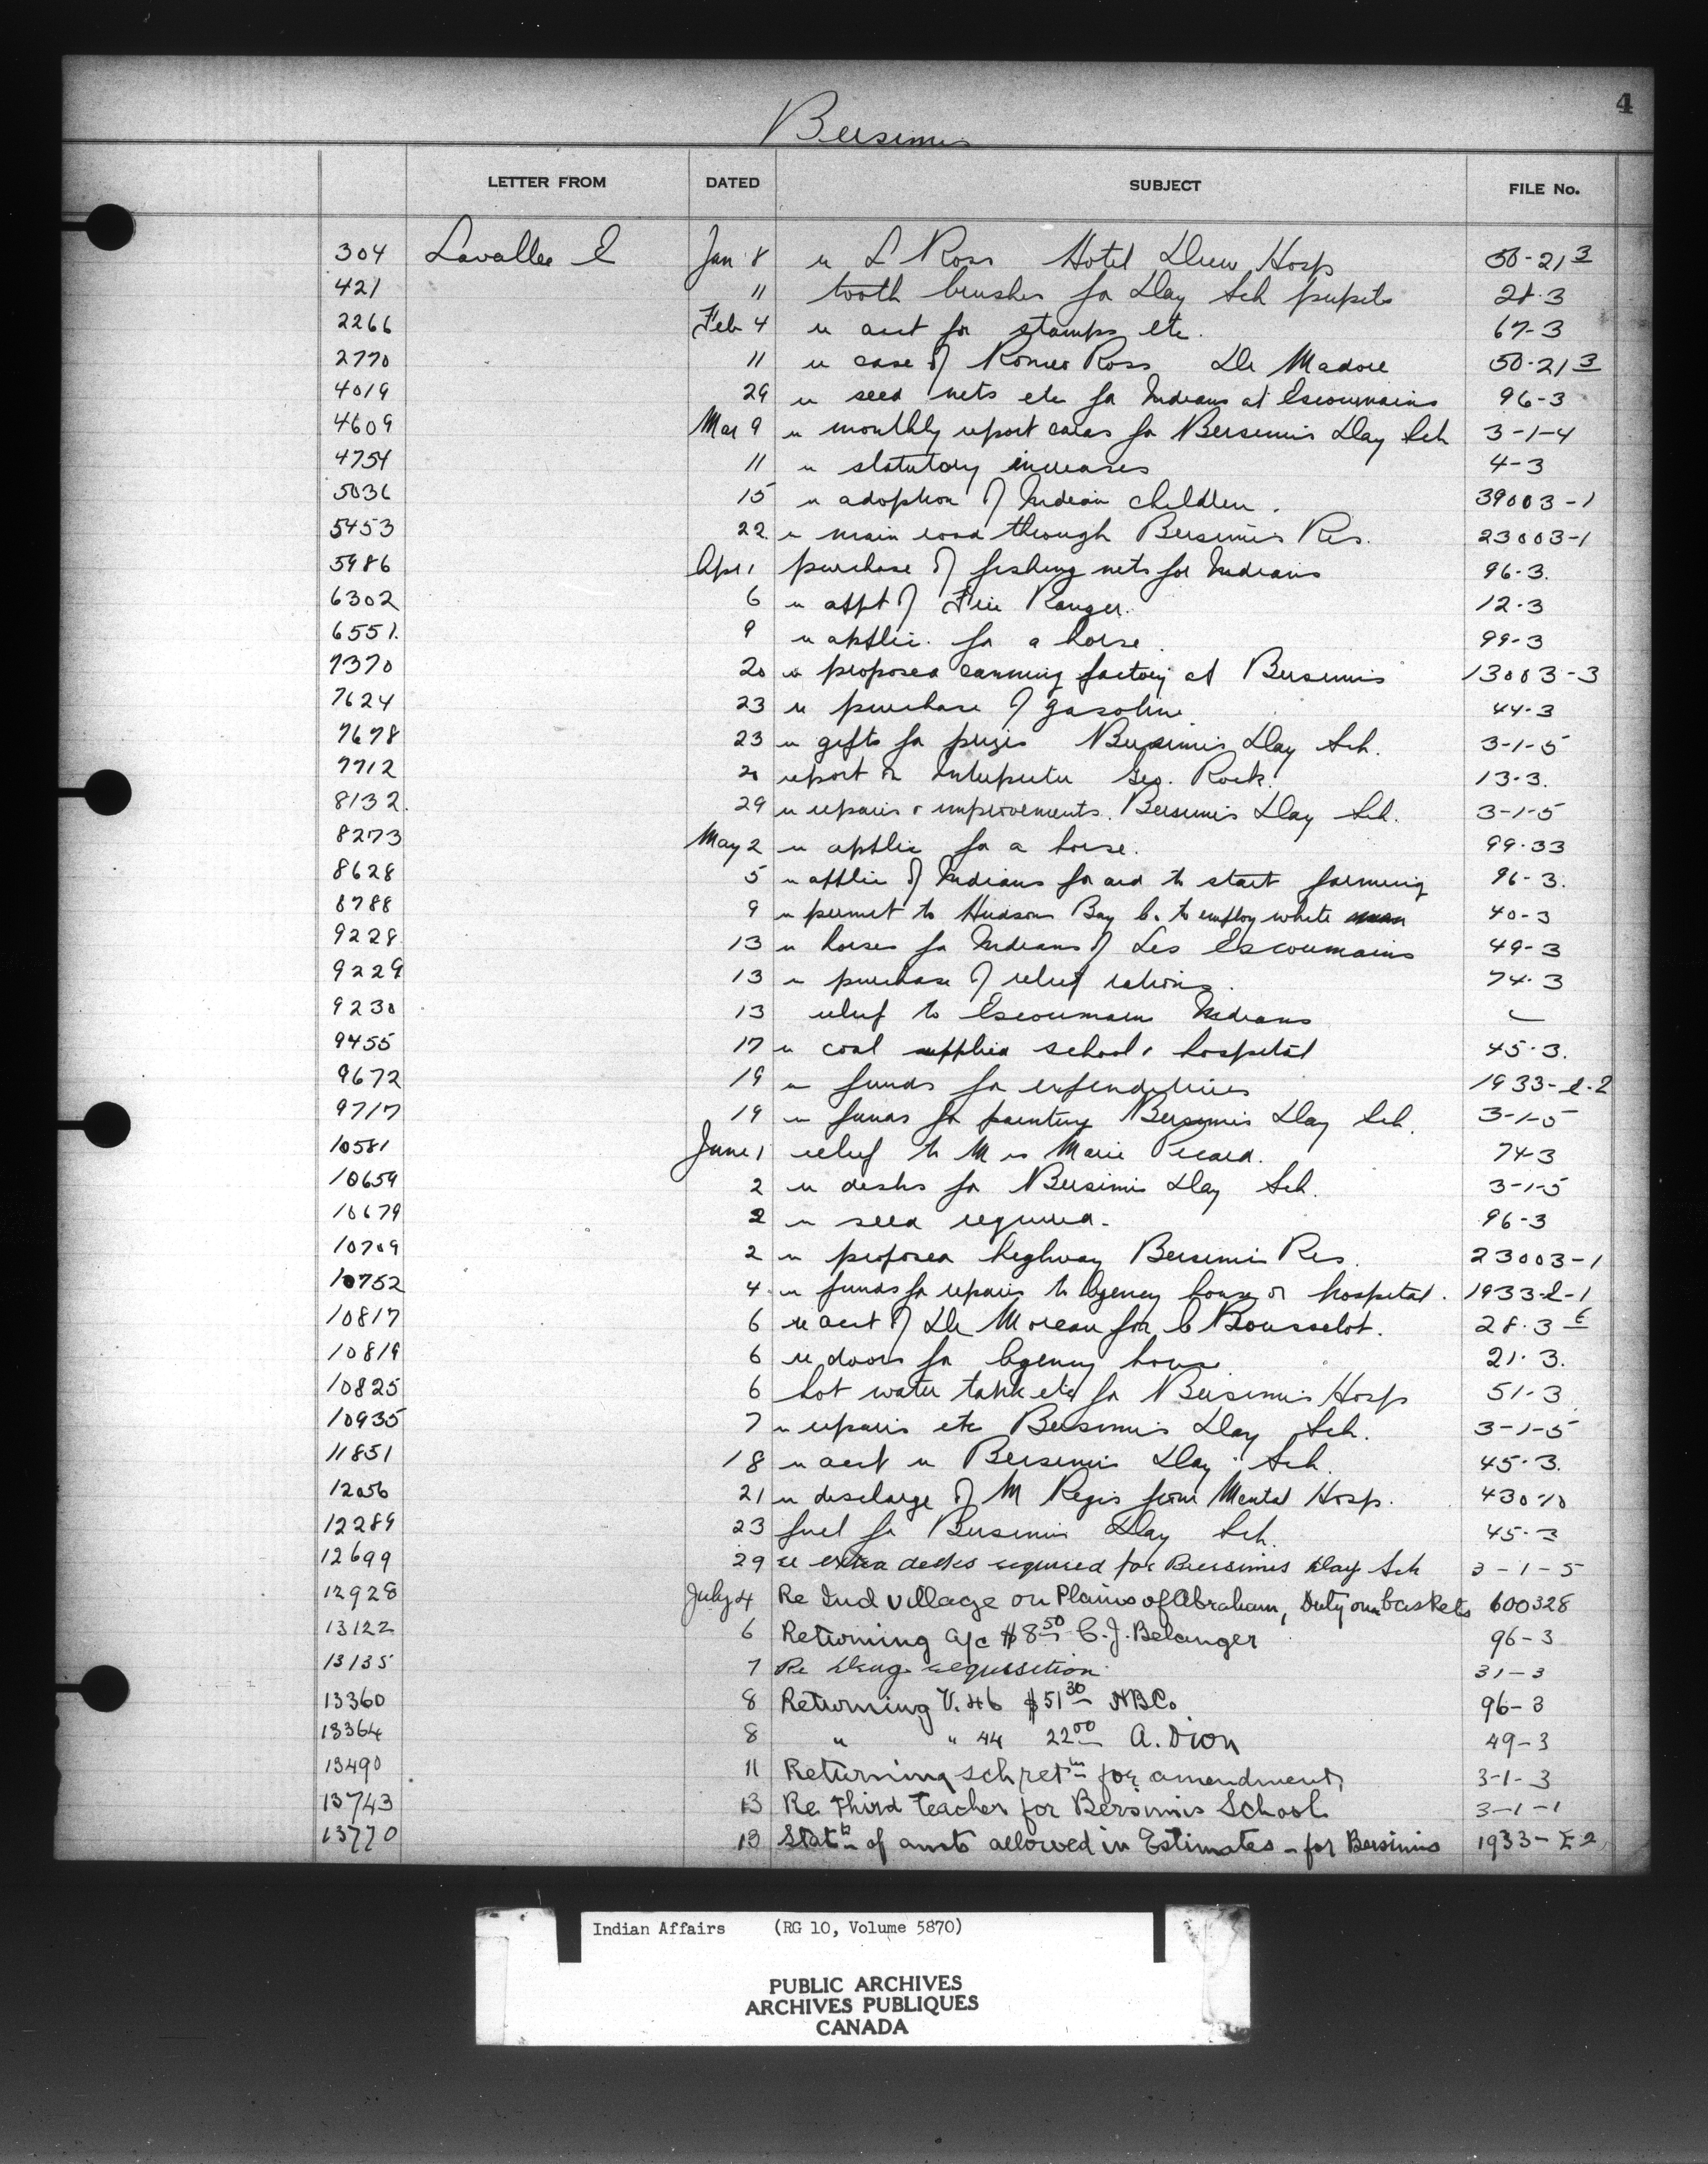 4
Bersimis
LETTER FROM DATED SUBJECT FILE No.
304 Lavallee E Jan 8 re L Ross Hotel Dieu Hosp 50-21 3
421 11 tooth brushes for Day Sch pupils 28-3
2266 Feb 4 re acct for stamps etc. 67-3
2770 11 re case of Romeo Ross Dr Madore 50-21 3
4019 29 re seed nets etc for Indians at Escoumains 96-3
4609 Mar 9 re monthly report cards for Bersimis Day Sch 3-1-4
4754 11 re statutory increases 4-3
5036 15 re adoption of Indian children. 39003-1
5453 22 re main road through Bersimis Res. 23003-1
5986 Apr 1 purchase of fishing nets for Indians 96-3.
6302 6 re appt of Fire Ranger. 12-3
6551. 9 re applic. for a horse. 99-3
7370 20 re proposed canning factory at Bersimis 13003-3
7624 23 re purchase of gasoline. 44-3
7678 23 re gifts for prizes Bersimis Day Sch. 3-1-5
7712 20 report on Interpreter Geo. Rock. 13-3.
8132. 29 re repairs & improvements. Bersimis Day Sch. 3-1-5
8273 May 2 re applic for a horse. 99-33
8628 5 re applic of Indians for aid to start farming 96-3.
8788 9 re permit to Hudson Bay Co. to employ white man 40-3
9228 13 re horses for Indians of Les Escoumains 49-3
9229 13 re purchase of relief rations. 74-3
9230 13 relief to Escoumain Indians
9455 17 re coal supplied school & hospital 45-3.
9672 19 re funds for expenditures 1933-E-2
9717 19 re funds for painting Bersimis Day Sch. 3-1-5
10581 June 1 relief to Mrs Marie Picard. 74-3
10659 2 re desks for Bersimis Day Sch. 3-1-5
10679 2 re seed required. 96-3
10709 2 re proposed highway Bersimis Res. 23003-1
10752 4 re funds for repairs to Agency house or hospital. 1933-E-1
10817 6 re acct of Dr Moreau for C Rousselot. 28-3 E
10819 6 re doors for Agency house 21-3.
10825 6 hot water tank etc for Bersimis Hosp 51-3
10935 7 re repairs etc Bersimis Day Sch. 3-1-5
11851 18 re acct re Bersimis Day Sch. 45-3.
12056 21 re discharge of M Regis from Mental Hosp. 430-10
12289 23 fuel for Bersimis Day Sch. 45-3
12699 29 re extra desks required for Bersimis Day Sch 3-1-5
12928 July 4 Re Ind village on Plains of Abraham, Duty on baskets 600328
13122 6 Returning a/c $8 50 C.J. Belanger 96-3
13135 7 Re Drug requisition 31-3
13360 8 Returning V. 46 $51 30 HBCo 96-3
13364 8 " " 44 22 00 A. Dion 49-3
13490 11 Returning sch ret ns for amendment, 3-1-3
13743 13 Re Third Teacher for Bersimis School 3-1-1
13770 13 Statt of amts allowed in Estimates - for Bersimis 1933-E2
Indian Affairs (RG 10, Volume 5870)
PUBLIC ARCHIVES
ARCHIVES PUBLIQUES
CANADA